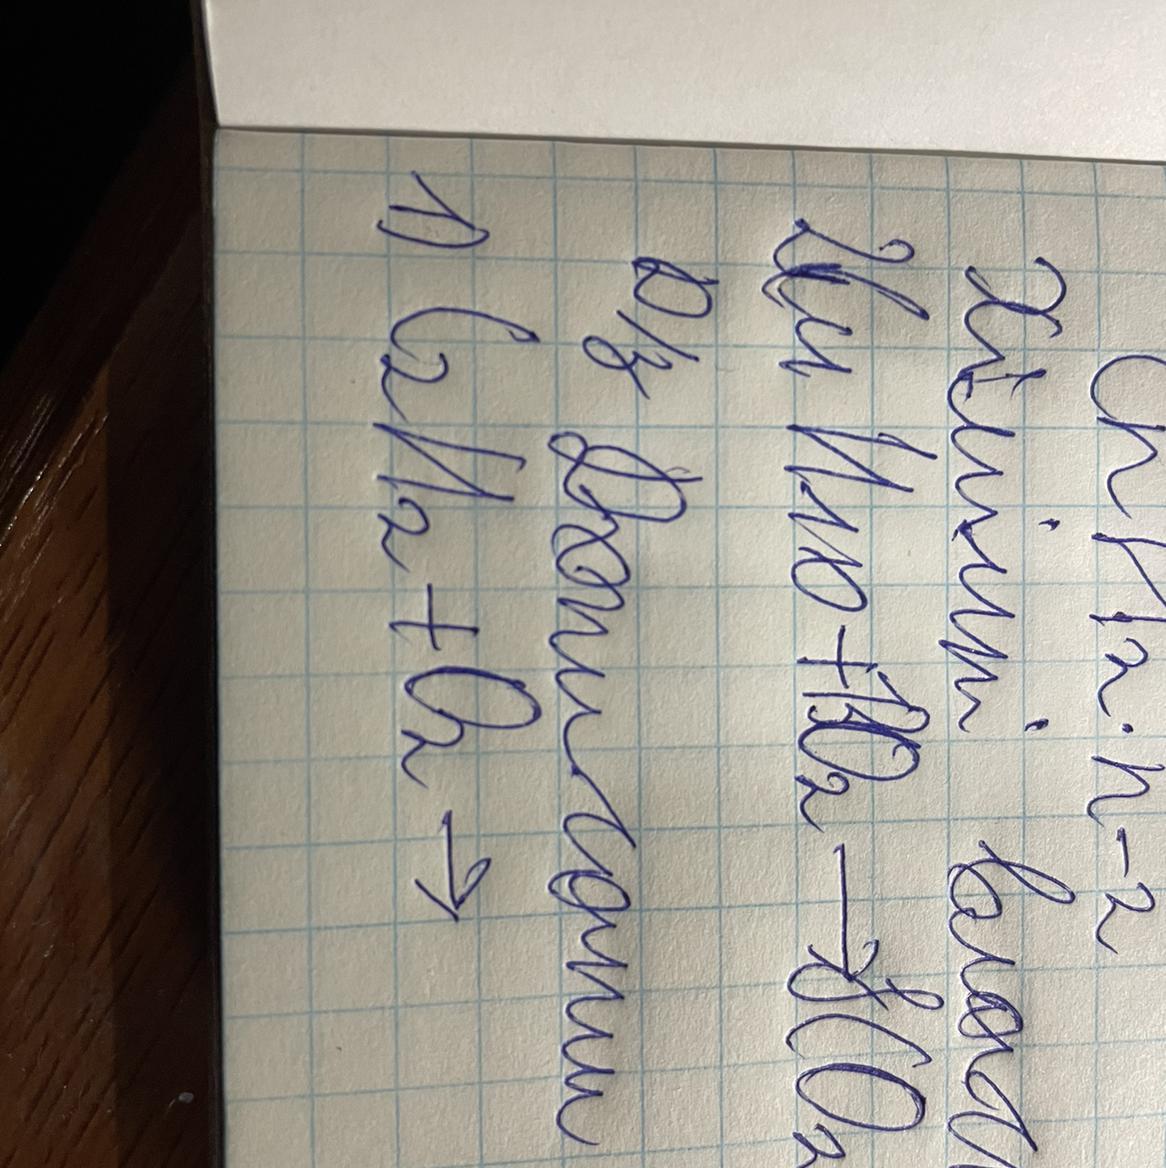 CnH2·n-2
Хімічні власт
2C4H10+13O2→8CO2
D/з Дописати
1) C2H2+O2→